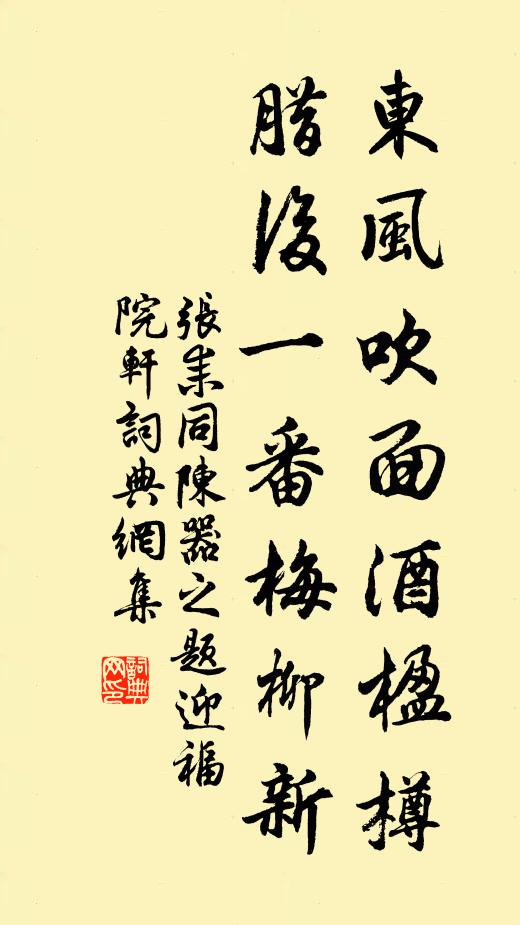 東風吹面酒楹樽
腊後一番梅柳新
張耒同陳器之題迎福
院軒詞典網集
詞典
网印